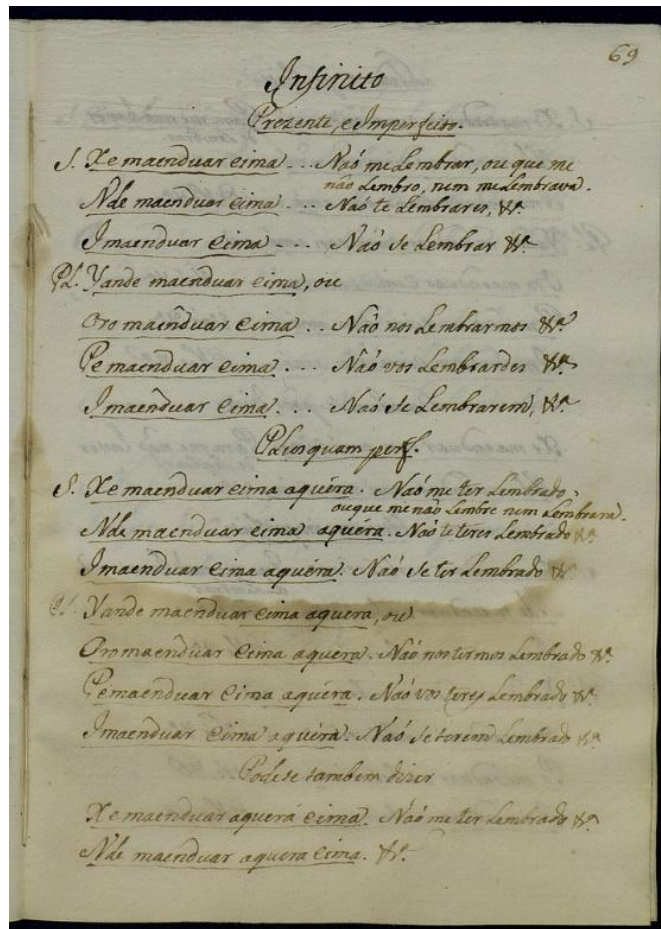 69
Infinito
Prezente, e Imperfeito.
S. Xe maenduar eima ... Naõ me Lembrar, ou que me
não Lembro, nem me Lembrava.
Nde maenduar eima ... Naõ te Lembrares, &ª.
Imaenduar eima ... Naõ se Lembrar &ª.
Pl. Yande maenduar eima, ou
Oro maenduar eima .. Não nos Lembrarmos &ª.
Pe maenduar eima ... Naõ vos Lembrardes &ª.
Imaenduar eima ... Naõ se Lembrarem, &ª.
Plusquam perf.
S. Xe maenduar eima aquéra. Naõ me ter Lembrado,
ou que me não Lembre nem Lembrara.
Nde maenduar eima aquéra. Naõ te teres Lembrado &ª.
Imaenduar eima aquéra. Naõ se ter Lembrado &ª.
Pl. Yande maenduar eima aquera, ou
Oro maenduar eima aquera. Naõ nos termos Lembrado &ª.
Pe maenduar eima aquéra. Naõ vos terey Lembrado &ª.
Imaenduar eima aquéra. Naõ se terem Lembrado &ª.
Pode se tambem dizer
Xe maenduar aquerá eima. Naõ me ter Lembrado &ª.
Nde maenduar aquera eima. &ª.